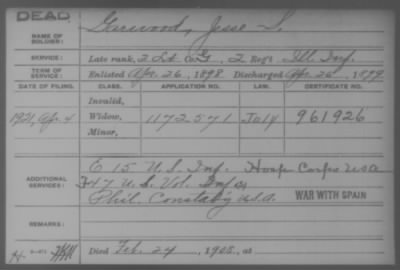 DEAD
NAME OF SOLDIER: Garwood, Jesse S.
SERVICE: Late rank, 2 Lt Co. G, 2 Regt. Ill. Inf.
TERM OF SERVICE: Enlisted Apr. 26, 1898 Discharged Apr. 26, 1899
DATE OF FILING. CLASS. APPLICATION NO. LAW. CERTIFICATE NO.
Invalid,
1921, Apr. 4 Widow, 1172571 961926
Minor,
ADDITIONAL SERVICES: E 15 U.S. Inf. Hosp Corps USA
47 U.S. Vol. Inf
Phil. Constab'y U.S.A. WAR WITH SPAIN
REMARKS:
Died Feb. 24, 1908, at